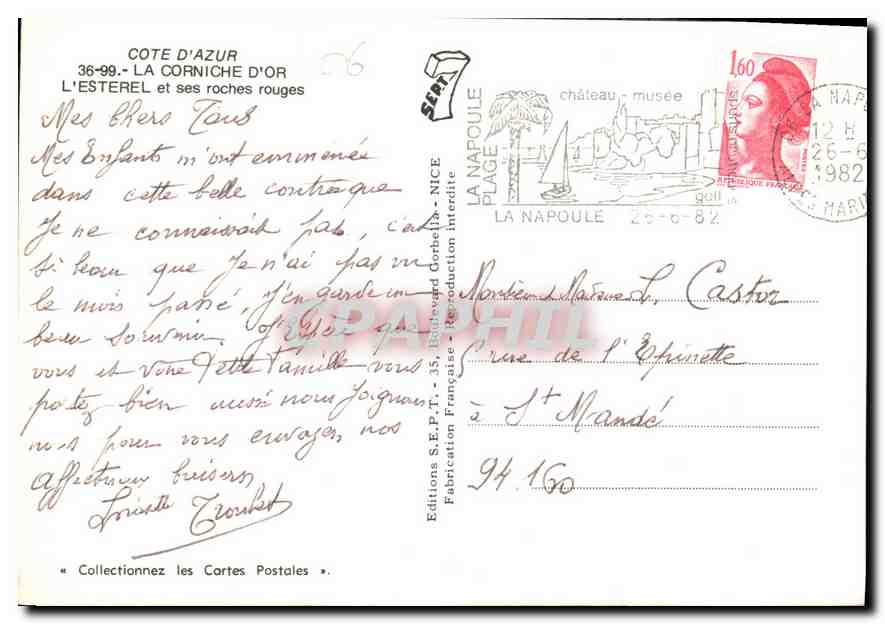 COTE D'AZUR
36-99.- LA CORNICHE D'OR
L'ESTEREL et ses roches rouges
06
Mes Chers Tous
Mes Enfants m'ont emmenée
dans cette belle contrée que
Je ne connaissait pas, c'est
si beau que Je n'ai pas vu
le mois passé, J'en garde un
beau souvenir. J'Espère que
vous et votre Petite Famille vous
portez bien aussi nous Joignons
nous pour vous envoyer nos
Affectueux baisers
Troubat
« Collectionnez les Cartes Postales ».
SEPT 7
Editions S.E.P.T. - 35, Boulevard Gorbella - NICE
Fabrication Française - Reproduction interdite
LA NAPOULE
PLAGE
château - musée
golf
LA NAPOULE 26-6-82
1,60
POSTES
REPUBLIQUE FRANÇAISE
LA NAPOULE
12 H
26-6
1982
MARIT
Monsieur et Madame L. Castor
rue de l'Epinette
à St Mandé
94.160
CPAPHIL